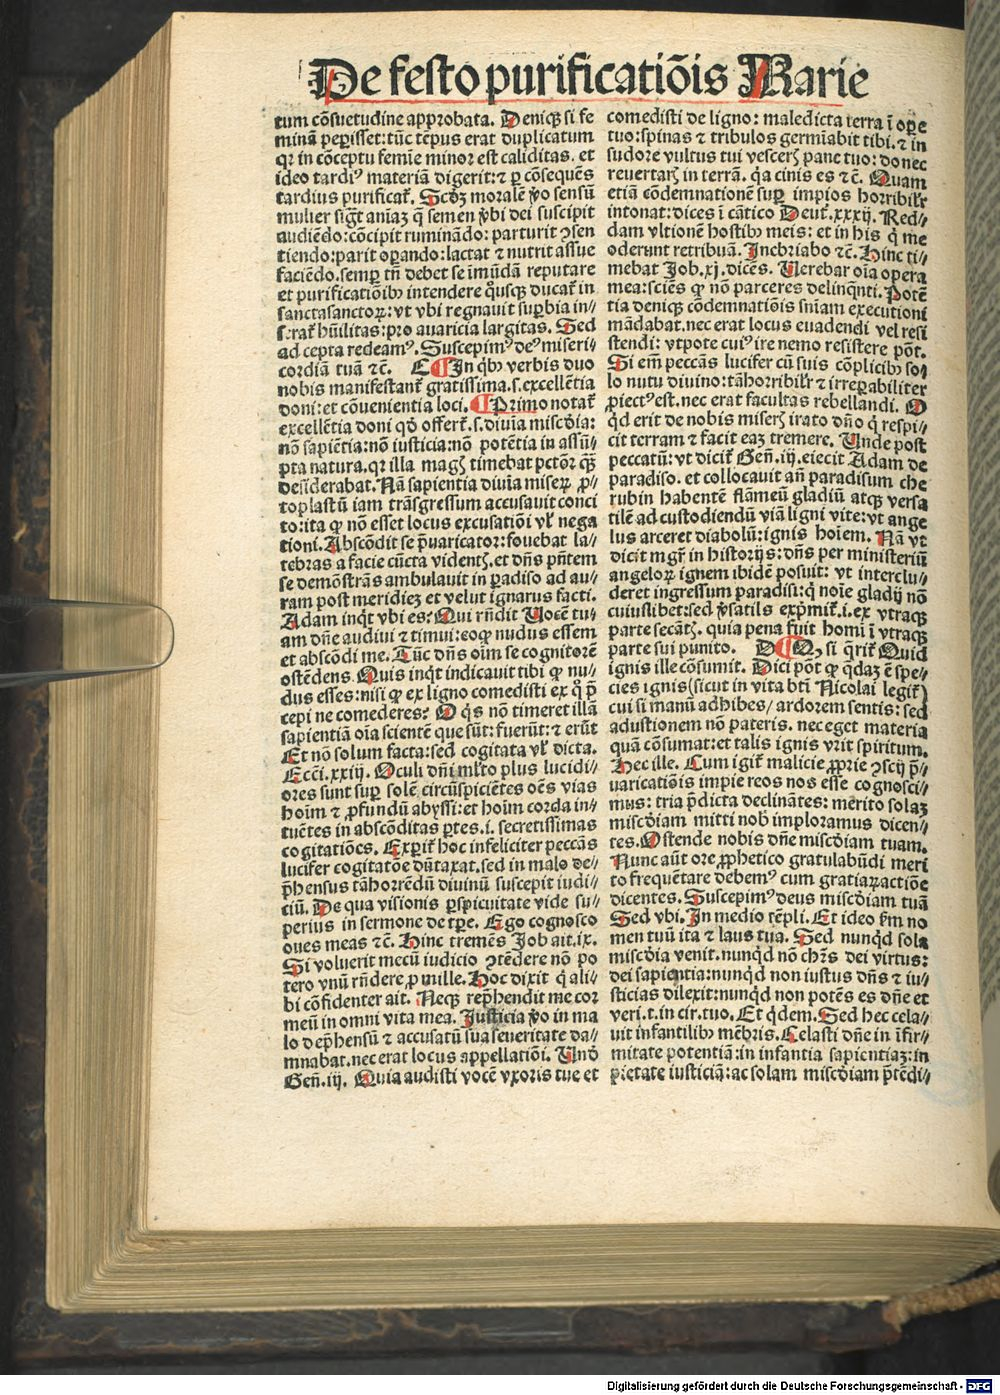 De festo purificatiōis Marie
tum cōsuetudine approbata. Deniqꝫ si fe
minā peperisset: tūc tēpus erat duplicatum
qꝛ in cōceptu femīe minor est caliditas. et
ideo tardiꝰ materiā digerit: ⁊ ꝑ cōsequēs
tardius purificat̄. Scdꝫ moralē v̄o sensū
mulier sigt̄ aīaꝫ q̄ semen v̄bi dei suscipit
audiēdo: cōcipit ruminādo: parturit ꝯsen
tiendo: parit oꝑando: lactat ⁊ nutrit assue
faciēdo. semper tn̄ debet se īmūdā reputare
et purificatiōibꝫ intendere qͦusqꝫ ducat̄ in
sanctasanctoꝝ: vt vbi regnauit suꝑbia in⸗
serat̄ hūilitas: pro auaricia largitas. Sed
ad cepta redeamꝰ. Suscepimꝰ deꝰ miseri⸗
cordiā tuā ⁊c. C ¶ In qͥbꝫ verbis duo
nobis manifestant̄ gratissima. s. excellētia
doni: et cōuenientia loci. ¶ Primo notat̄
excellētia doni qd̄ offert̄. s. diuīa miscd̄ia:
nō sapiētia: nō iusticia: nō potētia in assū⸗
pta natura. qꝛ illa magꝭ timebat pctōr qͣꝫ
desiderabat. Nā sapientia diuīa miseꝝ ꝓ⸗
toplastū iam trāsgressum accusauit conci
to: ita ꝙ nō esset locus excusatiōi vl̄ nega
tioni. Abscōdit se p̄uaricator: fouebat la⸗
tebras a facie cūcta videntꝭ. et dn̄s pn̄tem
se demōstrās ambulauit in ꝑadiso ad au⸗
ram post meridieꝫ et velut ignarus facti.
Adam inqͥt vbi es: Qui rn̄dit Uocē tu⸗
am dn̄e audiui ⁊ timui: eoqꝫ nudus essem
et abscōdi me. Tūc dn̄s oīm se cognitorē
ostēdens. Quis inqͥt indicauit tibi ꝙ nu⸗
dus esses: nisi ꝙ ex ligno comedisti ex qͦ p̄
cepi ne comederes: O qͥs nō timeret illā
sapientiā oīa scientē que sūt: fuerūt: ⁊ erūt
Et nō solum facta: sed cogitata vl̄ dicta.
Ecci. xxiij. Oculi dn̄i ml̄to plus lucidi⸗
ores sunt suꝑ solē circūspiciētes oēs vias
hoīm ⁊ ꝓfundū abyssi: et hoīm corda in⸗
tuētes in abscōditas ꝑtes. i. secretissimas
cogitatiōes. Exꝑit̄ hoc infeliciter peccās
lucifer cogitatōe dūtaxat. sed in malo de⸗
p̄hensus tāhorrēdū diuinū suscepit iudi⸗
ciū. De qua visionis ꝑspicuitate vide su⸗
perius in sermone de tꝑe. Ego cognosco
oues meas ⁊c. Hinc tremēs Job ait. ix.
Si voluerit mecū iudicio ꝯtēdere nō po
tero vnū rn̄dere ꝓ mille. Hoc dixit qͥ ali⸗
bi cōfidenter ait. Neqꝫ rep̄hendit me cor
meū in omni vita mea. Justicia v̄o in ma
lo dep̄hensū ⁊ accusatū sua seueritate da⸗
mnabat. nec erat locus appellatiōi. Und̄
Gen̄. iij. Quia audisti vocē vxoris tue et
comedisti de ligno: maledicta terra ī oꝑe
tuo: spinas ⁊ tribulos germīabit tibi. ⁊ in
sudore vultus tui vescerꝭ pane tuo: donec
reuertarꝭ in terrā. qꝛ cinis es ⁊c̄. Quam
etiā cōdemnationē suꝑ impios horribilr̄
intonat: dices ī cātico Deut̄. xxxij. Red⸗
dam vltionē hostibꝫ meis: et in his qͥ me
oderunt retribuā. Inebriabo ⁊c̄. Hinc ti⸗
mebat Job. xj. dicēs. Uerebar oīa opera
mea: sciēs ꝙ nō parceres delinqͣnti. Potē
tia deniqꝫ cōdemnatiōis sn̄iam executioni
mādabat. nec erat locus euadendi vel resi
stendi: vtpote cuiꝰ ire nemo resistere pōt.
Si em̄ peccās lucifer cū suis cōplicibꝫ so⸗
lo nutu diuino: tāhorribilr̄ ⁊ irreꝑabiliter
ꝓiectꝰ est. nec erat facultas rebellandi. O
qͥd erit de nobis miserꝭ irato dn̄o qͥ respi⸗
cit terram ⁊ facit eaꝫ tremere. Unde post
peccatū: vt dicit̄ Gen̄. iij. eiecit Adam de
paradiso. et collocauit an̄ paradisum che
rubin habentē flāmeū gladiū atqꝫ versa
tilē ad custodiendū viā ligni vite: vt ange
lus arceret diabolū: ignis hoīem. Nā vt
dicit mgr̄ in historijs: dn̄s per ministeriū
angeloꝝ ignem ibidē posuit: vt interclu⸗
deret ingressum paradisi: qͥ noīe gladij nō
cuiuslibet: sed v̄satilis exprimit̄. i. ex vtraqꝫ
parte secātꝭ. quia pena fuit homī ī vtraqꝫ
parte sui punito. D ¶ Qꝫ si qͥrit̄ Quid
ignis ille cōsumit. Dici pōt ꝙ qͥdaꝫ ē spe⸗
cies ignis (sicut in vita bt̄i Nicolai legit̄)
cui si manū adhibes / ardorem sentis: sed
adustionem nō pateris. nec eget materia
quā cōsumat: et talis ignis vrit spiritum.
Hec ille. Cum igit̄ malicie ꝓprie ꝯscij p̄⸗
uaricatiōis impie reos nos esse cognosci⸗
mus: tria p̄dicta declināntes: merito solaꝫ
miscd̄iam mitti nob̄ imploramus dicen⸗
tes. Ostende nobis dn̄e miscd̄iam tuam.
Nunc aūt ore ꝓphetico gratulabūdi meri
to frequētare debemꝰ cum gratiaꝝactiōe
dicentes. Suscepimꝰ deus miscd̄iam tuā
Sed vbi. In medio tēpli. Et ideo ẜm no
men tuū ita ⁊ laus tua. Sed nunqͥd sola
miscd̄ia venit. nunqͥd nō chr̄s dei virtus:
dei sapientia: nunqͥd non iustus dn̄s ⁊ iu⸗
sticias dilexit: nunqͥd non potēs es dn̄e et
veri. t. in cir. tuo. Et qͥdem. Sed hec cela⸗
uit infantilibꝫ mēbris. Celasti dn̄e in īfir⸗
mitate potentiā: in infantia sapientiaꝫ: in
pietate iusticiā: ac solam miscd̄iam p̄tēdi⸗
Digitalisierung gefördert durch die Deutsche Forschungsgemeinschaft - DFG